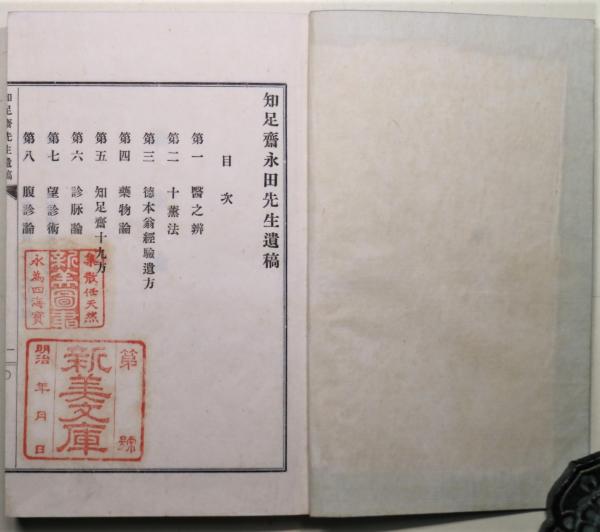 知足齋永田先生遺稿
目次
第一 醫之辨
第二 十薰法
第三 德本翁經驗遺方
第四 藥物論
第五 知足齋十九方
第六 診脉論
第七 望診術
第八 腹診論
知足齋先生遺稿
集散任天然
新美圖書
永為四海寶
第 號
新美文庫
明治 年 月 日